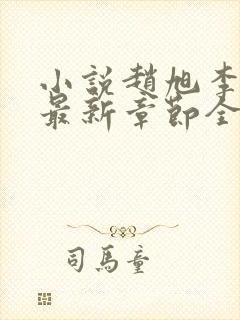 小說趙旭李
最新章節全
司馬童